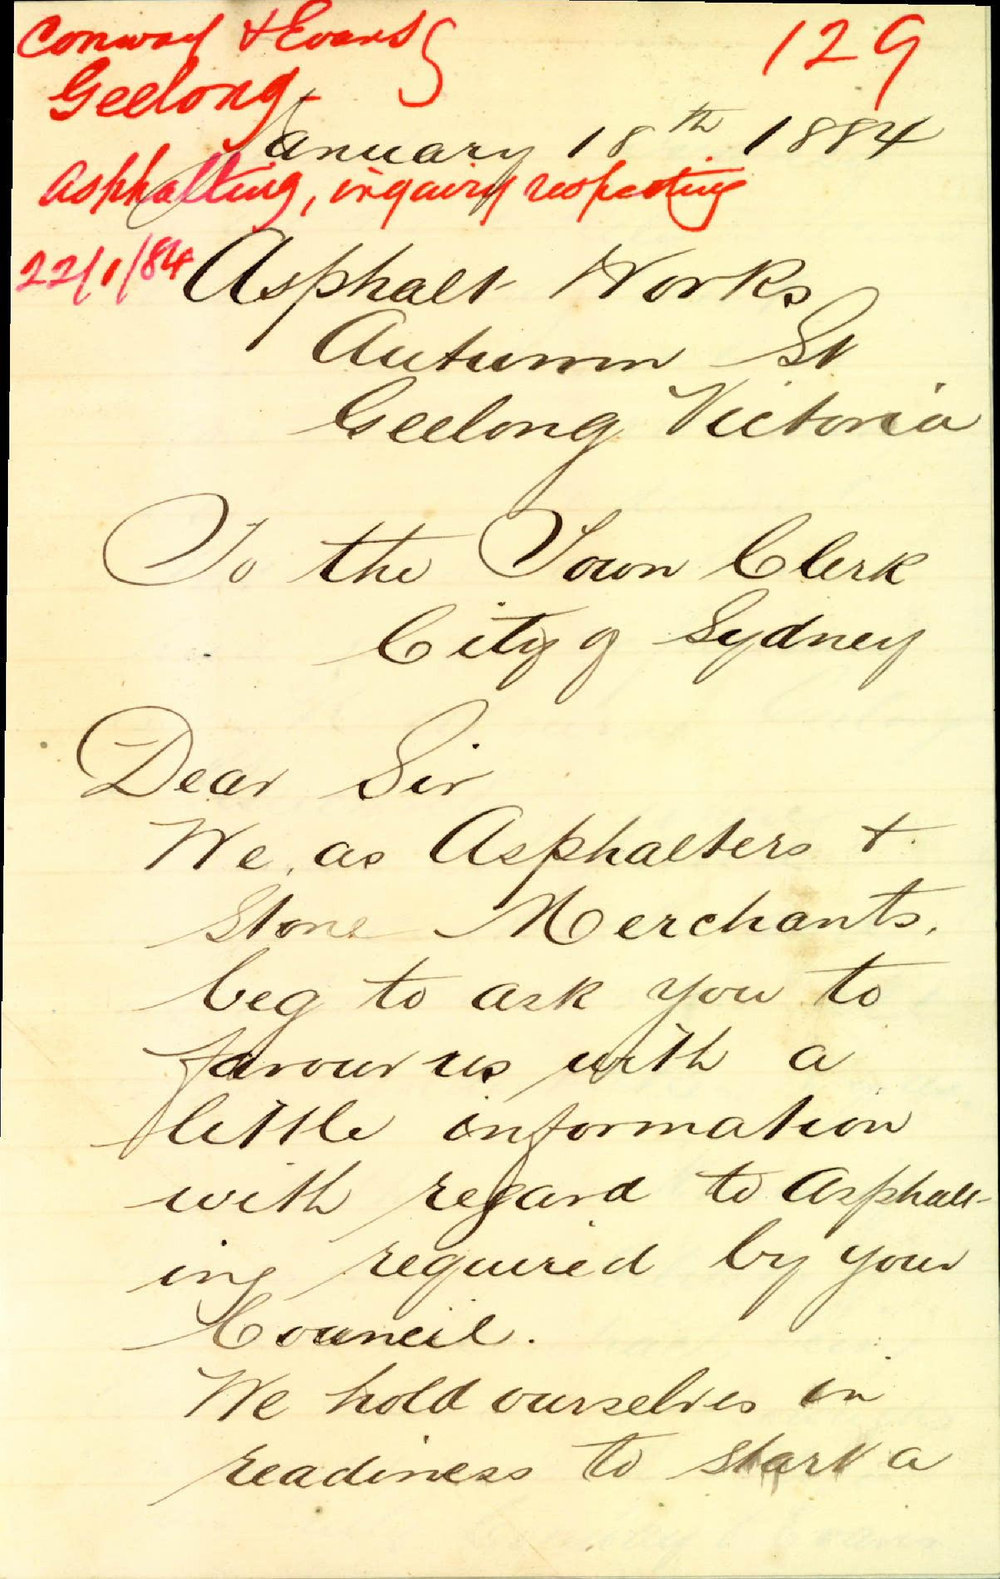 Conway & Evans
129
Geelong
January 18th 1884
Asphalting, inquiry respecting
22/1/84
Asphalt Works
Autumn St
Geelong Victoria
To the Town Clerk
City of Sydney
Dear Sir
We, as Asphalters &
Stone Merchants,
beg to ask you to
favour us with a
little information
with regard to Asphalt-
ing required by your
Council.
We hold ourselves in
readiness to start a